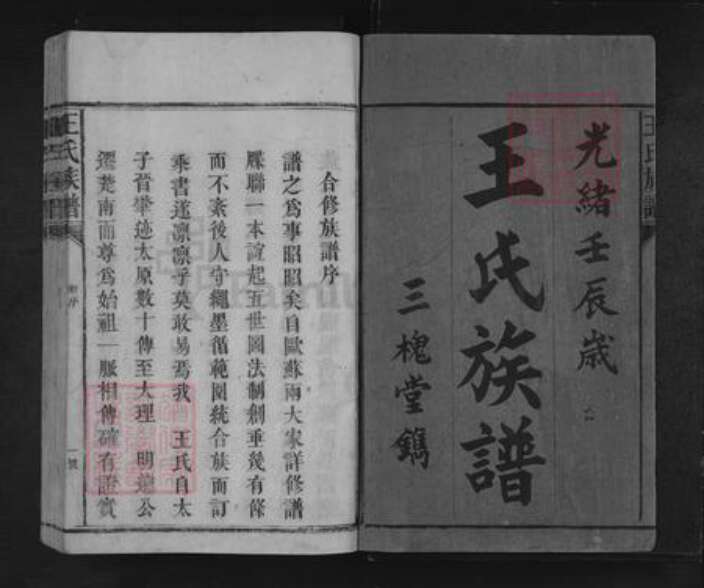 光緒壬辰歲
王氏族譜
三槐堂鐫
合修族譜序
譜之為事昭昭矣自歐蘇兩大家詳修譜
牒聯一本誼起五世圖法制創垂幾有條
而不紊後人守繩墨循範圍統合族而訂
乘書遂凜凜乎莫敢易焉我 王氏自太
子晉肇迹太原數十傳至大理 明遠公
遷楚南而尊為始祖一脈相傳確有證實
王氏族譜
序
一號